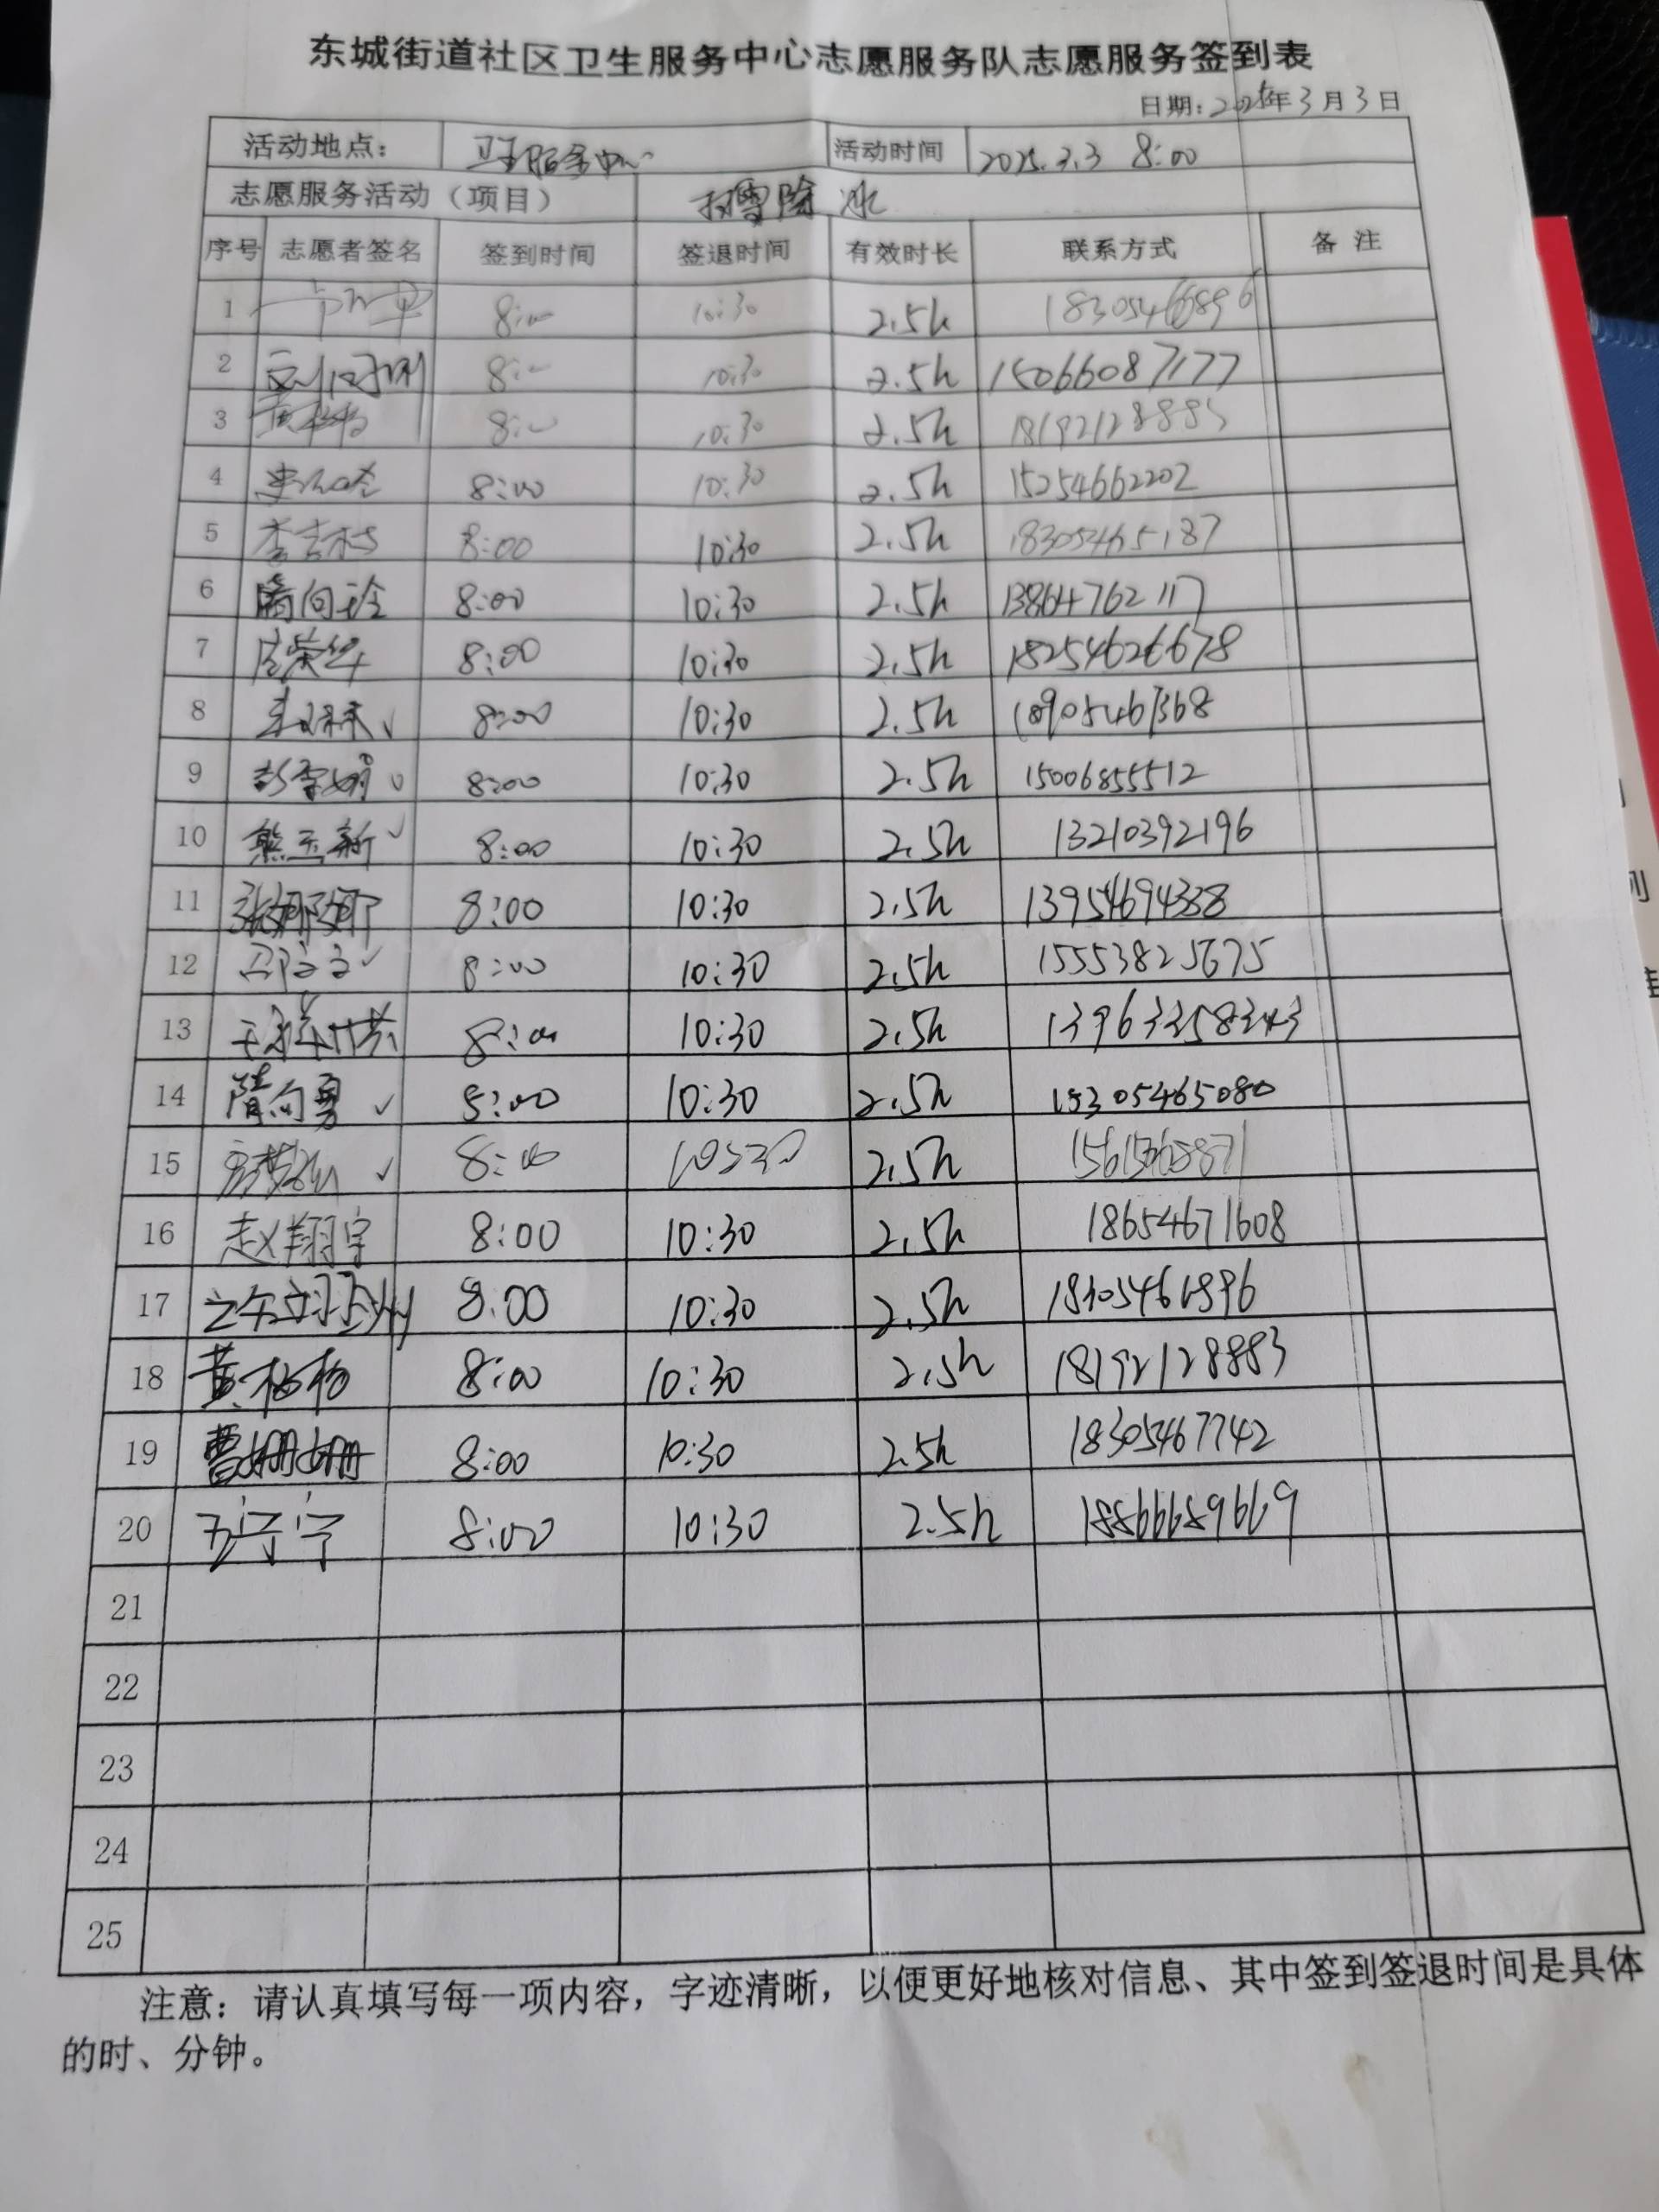 东城街道社区卫生服务中心志愿服务队志愿服务签到表
日期：2025年3月3日
活动地点： 卫生服务中心 活动时间 2025.3.3 8:00
志愿服务活动（项目） 扫雪除冰
序号 志愿者签名 签到时间 签退时间 有效时长 联系方式 备注
1 8:00 10:30 2.5h 18305466896
2 8:00 10:30 2.5h 15066087177
3 8:00 10:30 2.5h 18192128883
4 8:00 10:30 2.5h 15254662202
5 李吉树 8:00 10:30 2.5h 18305465187
6 隋向玲 8:00 10:30 2.5h 13864762117
7 8:00 10:30 2.5h 18254626678
8 8:00 10:30 2.5h 18905467368
9 8:00 10:30 2.5h 15006855512
10 熊玉新 8:00 10:30 2.5h 13210392196
11 张娜娜 8:00 10:30 2.5h 13954694388
12 8:00 10:30 2.5h 15553825675
13 8:00 10:30 2.5h
14 隋向勇 8:00 10:30 2.5h 15305465080
15 8:00 10:30 2.5h
16 赵翔宇 8:00 10:30 2.5h 18654671608
17 8:00 10:30 2.5h 18305466896
18 黄杨杨 8:00 10:30 2.5h 18192128883
19 曹姗姗 8:00 10:30 2.5h 18305467742
20 8:00 10:30 2.5h 18866689669
21
22
23
24
25
注意：请认真填写每一项内容，字迹清晰，以便更好地核对信息、其中签到签退时间是具体
的时、分钟。